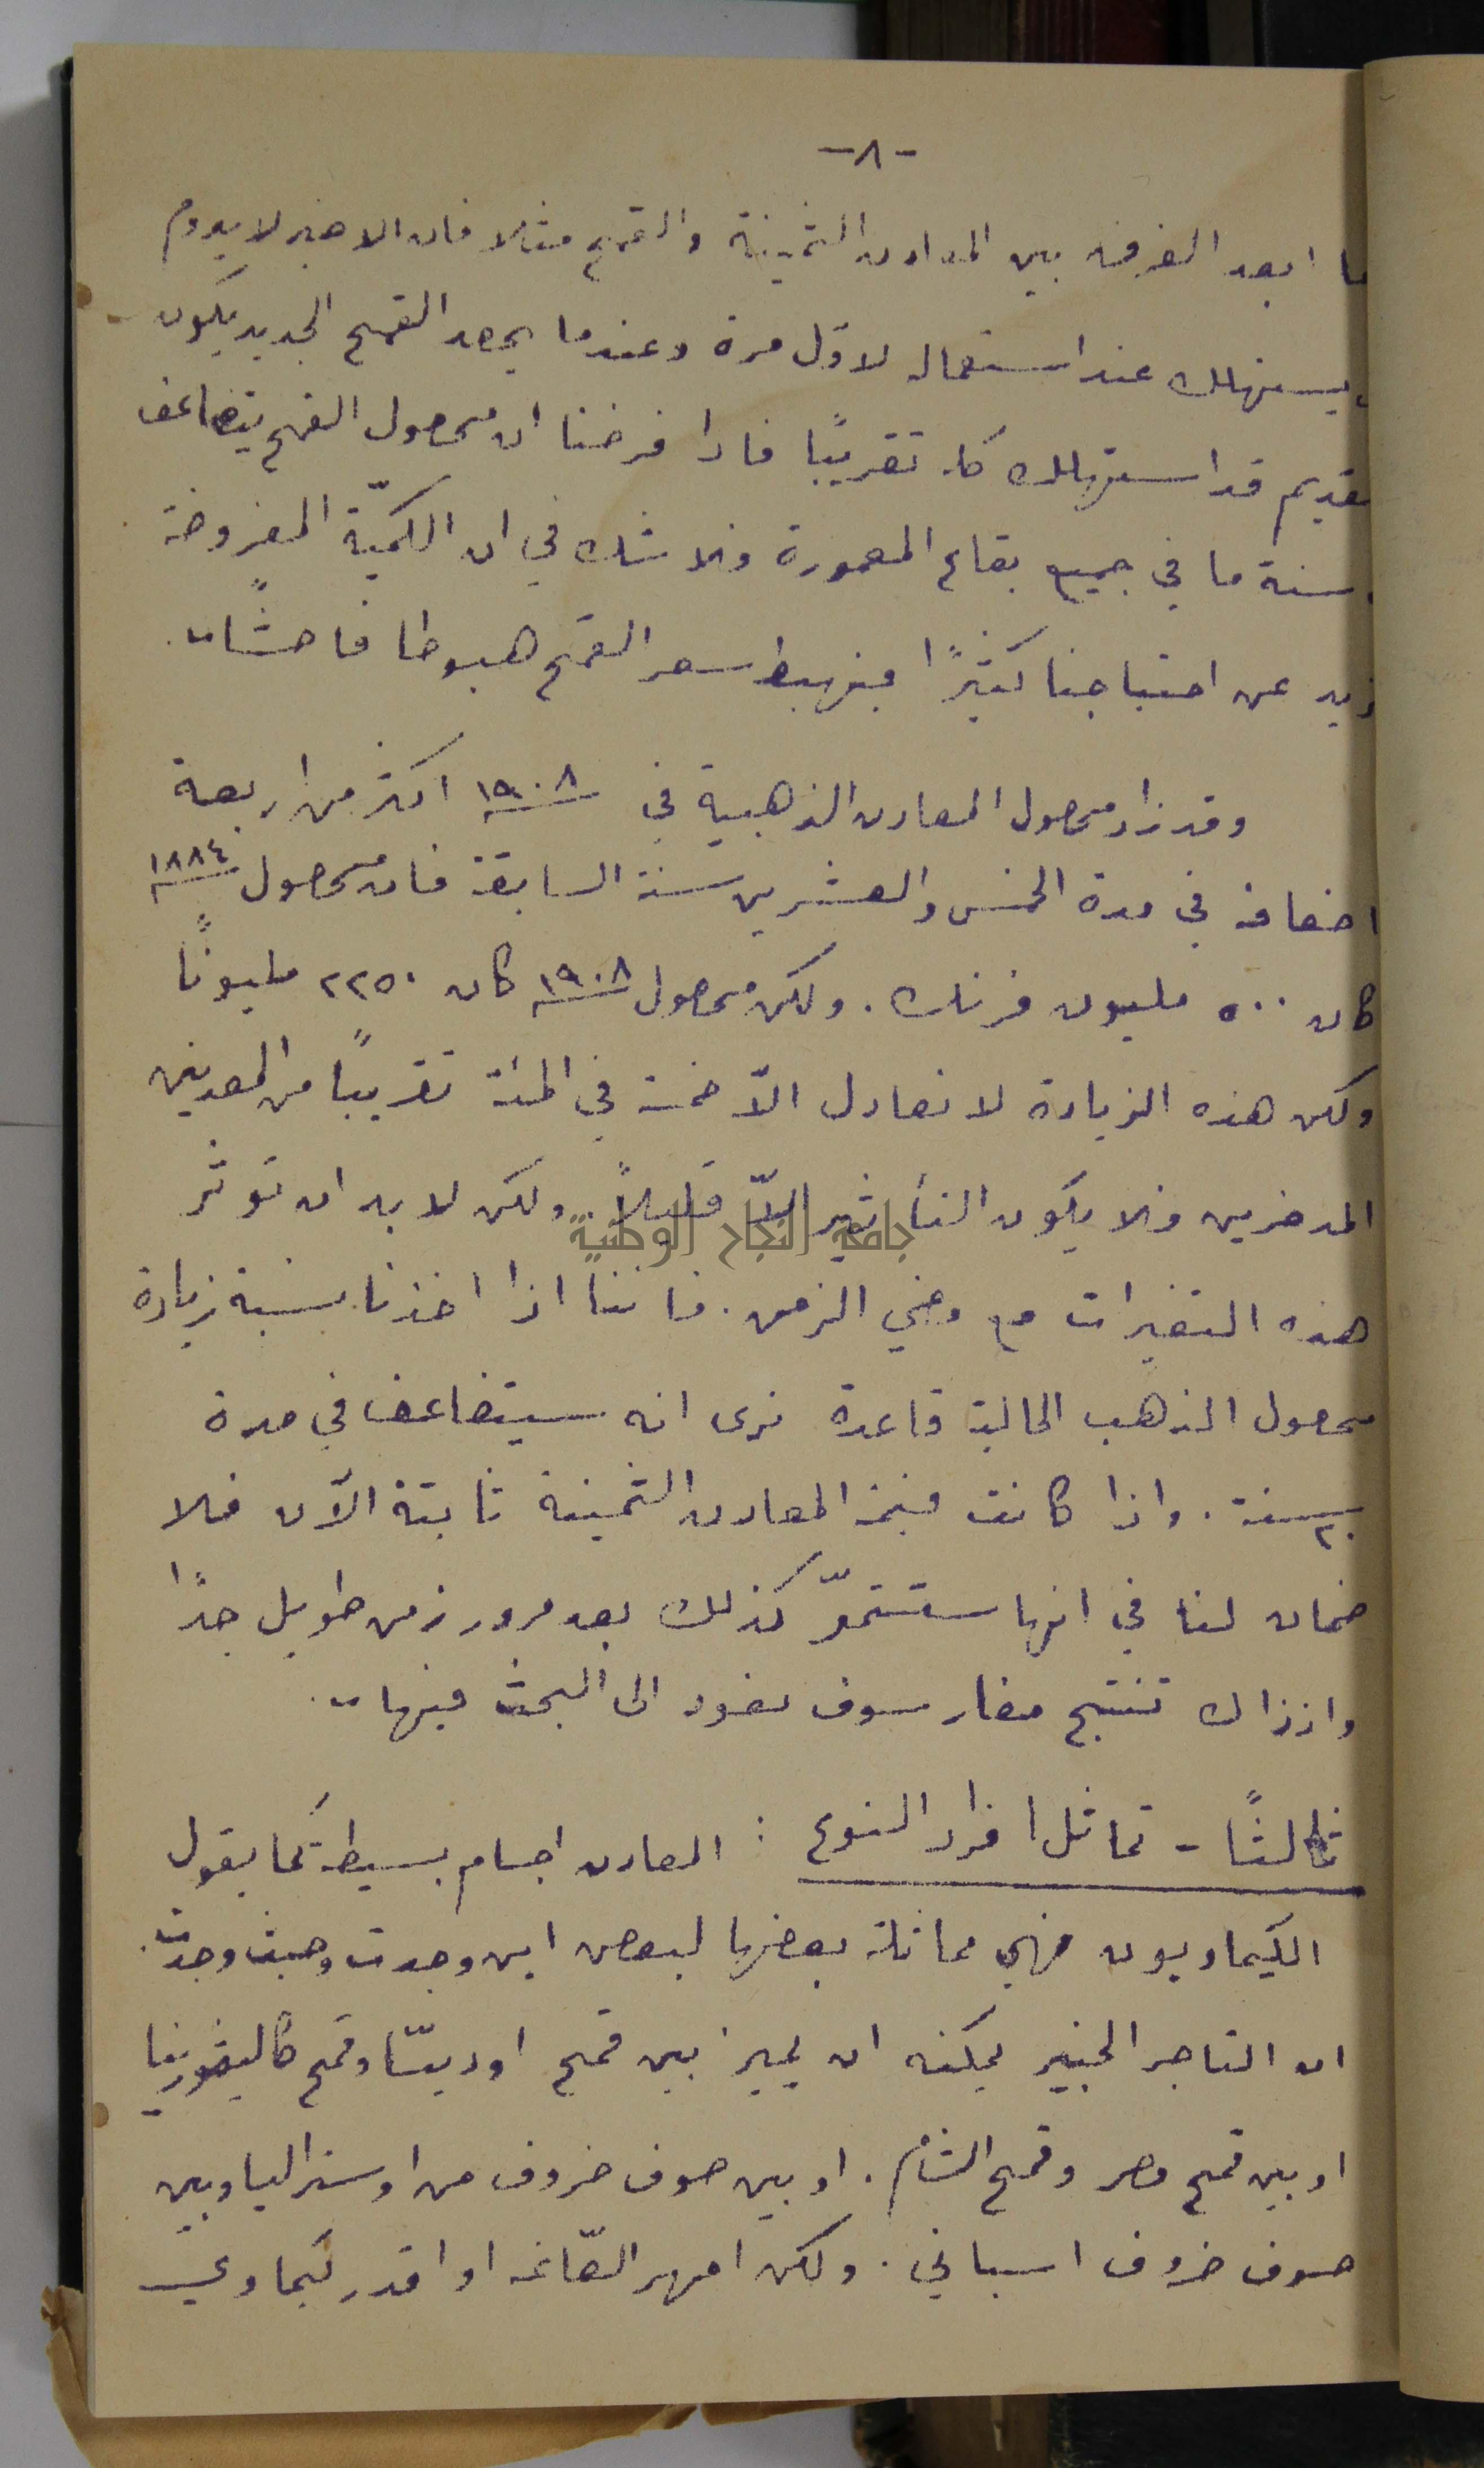 -٨-
ما ابعد الفرق بين المعادن الثمينة والقمح مثلا فان الاخير لا يدوم
يستهلك عند استعماله لاوّل مرة وعندما يحصد القمح الجديد يكون
لقديم قد استهلك كله تقريبًا فاذا فرضنا ان محصول القمح يتضاعف
سنة ما في جميع بقاع المعمورة فلا شك في ان الكميّة المعروضة
زيد عن احتياجنا كثيرًا فيهبط سعر القمح هبوطا فاحشًا.
وقد زاد محصول المعادن الذهبية في ١٩٠٨ اكثر من اربعة
اضعافه في مدة الخمس والعشرين سنة السابقة فان محصول ١٨٨٤
كان ٥٠٠ مليون فرنك. ولكن محصول ١٩٠٨ كان ٢٢٥٠ مليونًا
ولكن هذه الزيادة لا تعادل الاّ خمسة في المئة تقريبًا من المعدنين
المدخرين فلا يكون التأثير الاّ قليلاً. ولكن لا بد ان تؤثر
جامعة النجاح الوطنية
هذه التغيرات مع مضي الزمن. فاننا اذا اخذنا نسبة زيادة
محصول الذهب الحالية قاعدة نرى انه سيتضاعف في مدة
٢٠ سنة. واذا كانت قيمة المعادن الثمينة ثابتة الآن فلا
ضمان لنا في انها ستستمرّ كذلك بعد مرور زمن طويل جدًا
واذ ذاك تنتج مضار سوف نعود الى البحث فيها.
ثالثًا - تماثل افراد النوع : المعادن اجسام بسيطة كما يقول
الكيماويون فهي مماثلة بعضها لبعض اين وجدت وحيث وجدت.
ان التاجر الخبير يمكنه ان يميز بين قمح اوديسّا وقمح كاليفورنيا
او بين قمح مصر وقمح الشام. او بين صوف خروف من اوستراليا وبين
صوف خروف اسباني. ولكن امهر الصّاغة او اقدر كيماوي